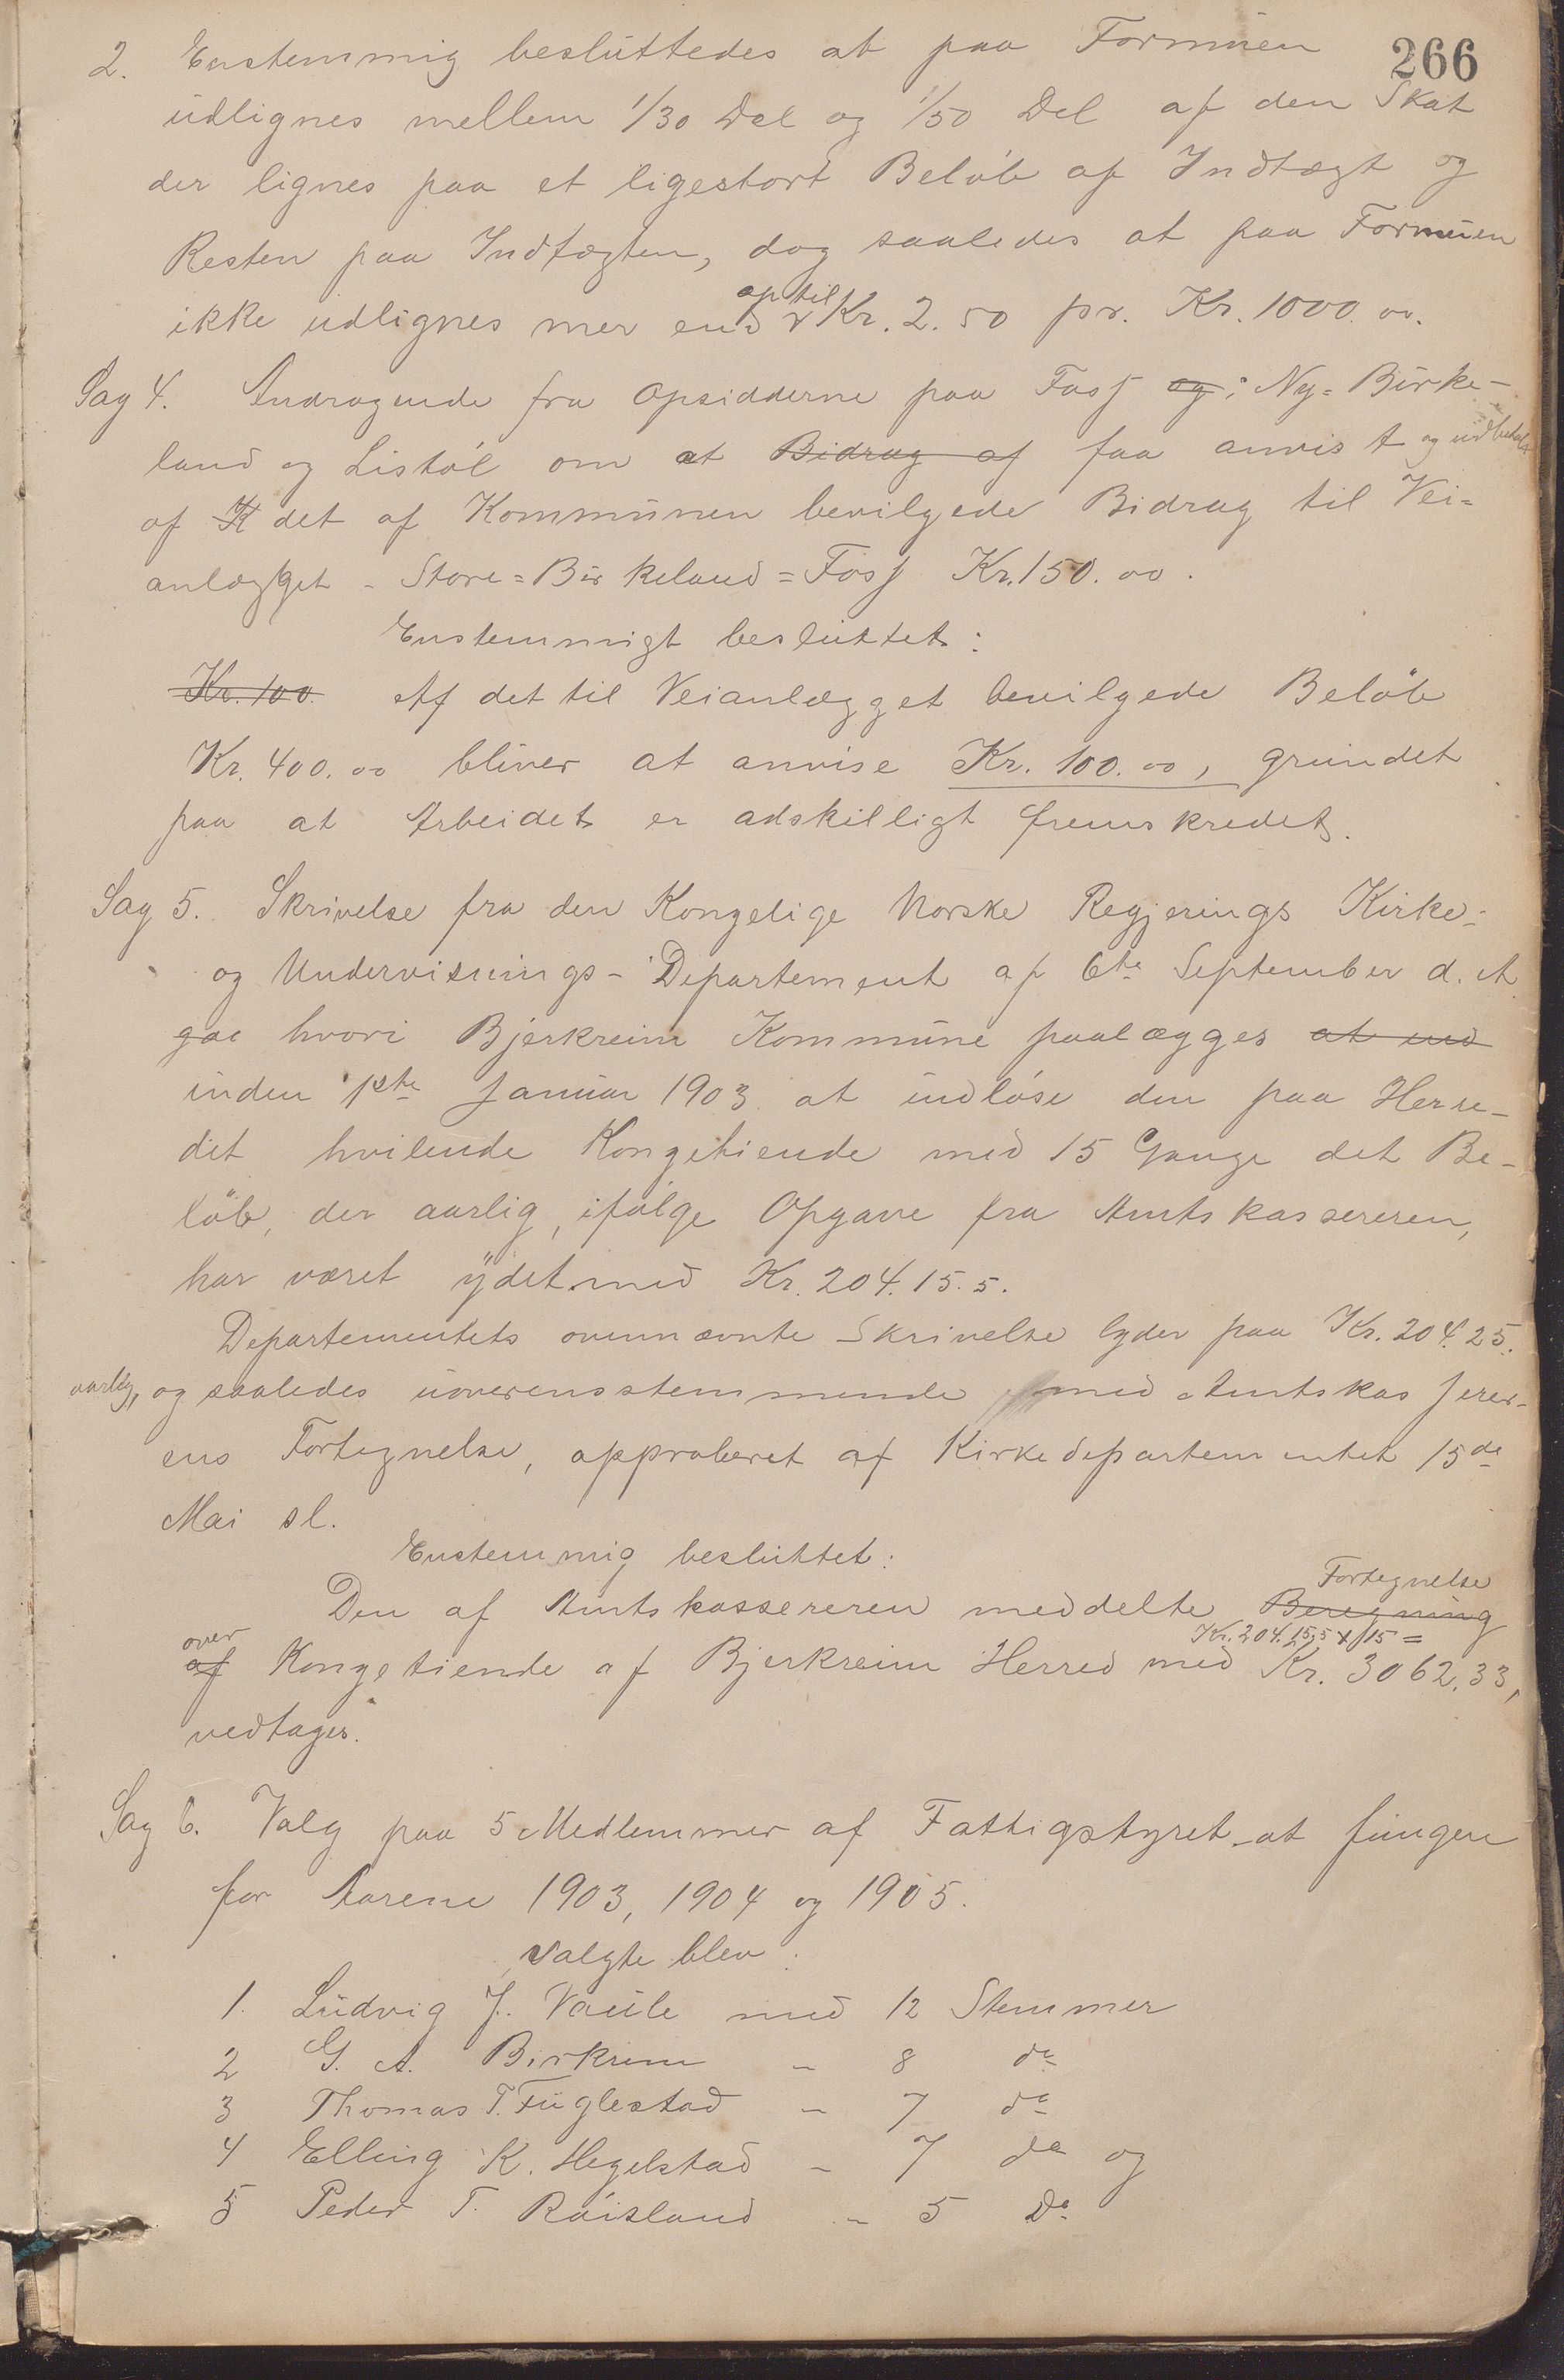 266
2. Enstemmig besluttedes at paa Formuen
udlignes mellem 1/30 Del og 1/50 Del af den Skat
der lignes paa et ligestort Beløb af Indtægt og
Resten paa Indtægten, dog saaledes at paa Formuen
op til
ikke udlignes mer end Kr. 2.50 pr. Kr. 1000.oo.
Sag 4. Andragende fra Opsidderne paa Fosf og, Ny-Birke-
land og Listøl om at Bidrag af faa anvist og udbetalt
af K det af Kommunen bevilgede Bidrag til Vei-
anlægget - Store-Birkeland-Fosf Kr. 150.oo.
Enstemmigt besluttet:
Kr. 100. Af det til Veianlægget bevilgede Beløb
Kr. 400.oo bliver at anvise Kr. 100.oo, grundet
paa at Arbeidet er adskilligt fremskredet.
Sag 5. Skrivelse fra den Kongelige Norske Regjerings Kirke-
og Undervisnings-Departement af 6te September d. A.
hvori Bjerkreim Kommune paalægges at ind
inden 1ste Januar 1903 at indløse den paa Herre-
det hvilende Kongetiende med 15 Gange det Be-
løb, der aarlig, ifølge Opgave fra Amtskassereren,
har været ydet med Kr. 204.15.5.
Departementets ovennævnte Skrivelse lyder paa Kr. 204.25.
aarlig, og saaledes uoverensstemmende med Amtskasserer-
ens Fortegnelse, approberet af Kirkedepartementet 15de
Mai sl.
Enstemmig besluttet:
Fortegnelse
Den af Amtskassereren meddelte Beregning
over Kr. 204.15,5 x 15 =
af Kongetiende af Bjerkreim Herred med Kr. 3062.33,
vedtages."
Sag 6. Valg paa 5 Medlemmer af Fattigstyret at fungere
for Aarene 1903, 1904 og 1905.
Valgte blev:
1. Ludvig J. Vaule med 12 Stemmer
2 G. A. Birkrem - 8 do
3 Thomas T. Fuglestad - 7 do
4 Elling K. Hegelstad - 7 do og
5 Peder T. Røisland - 5 Do